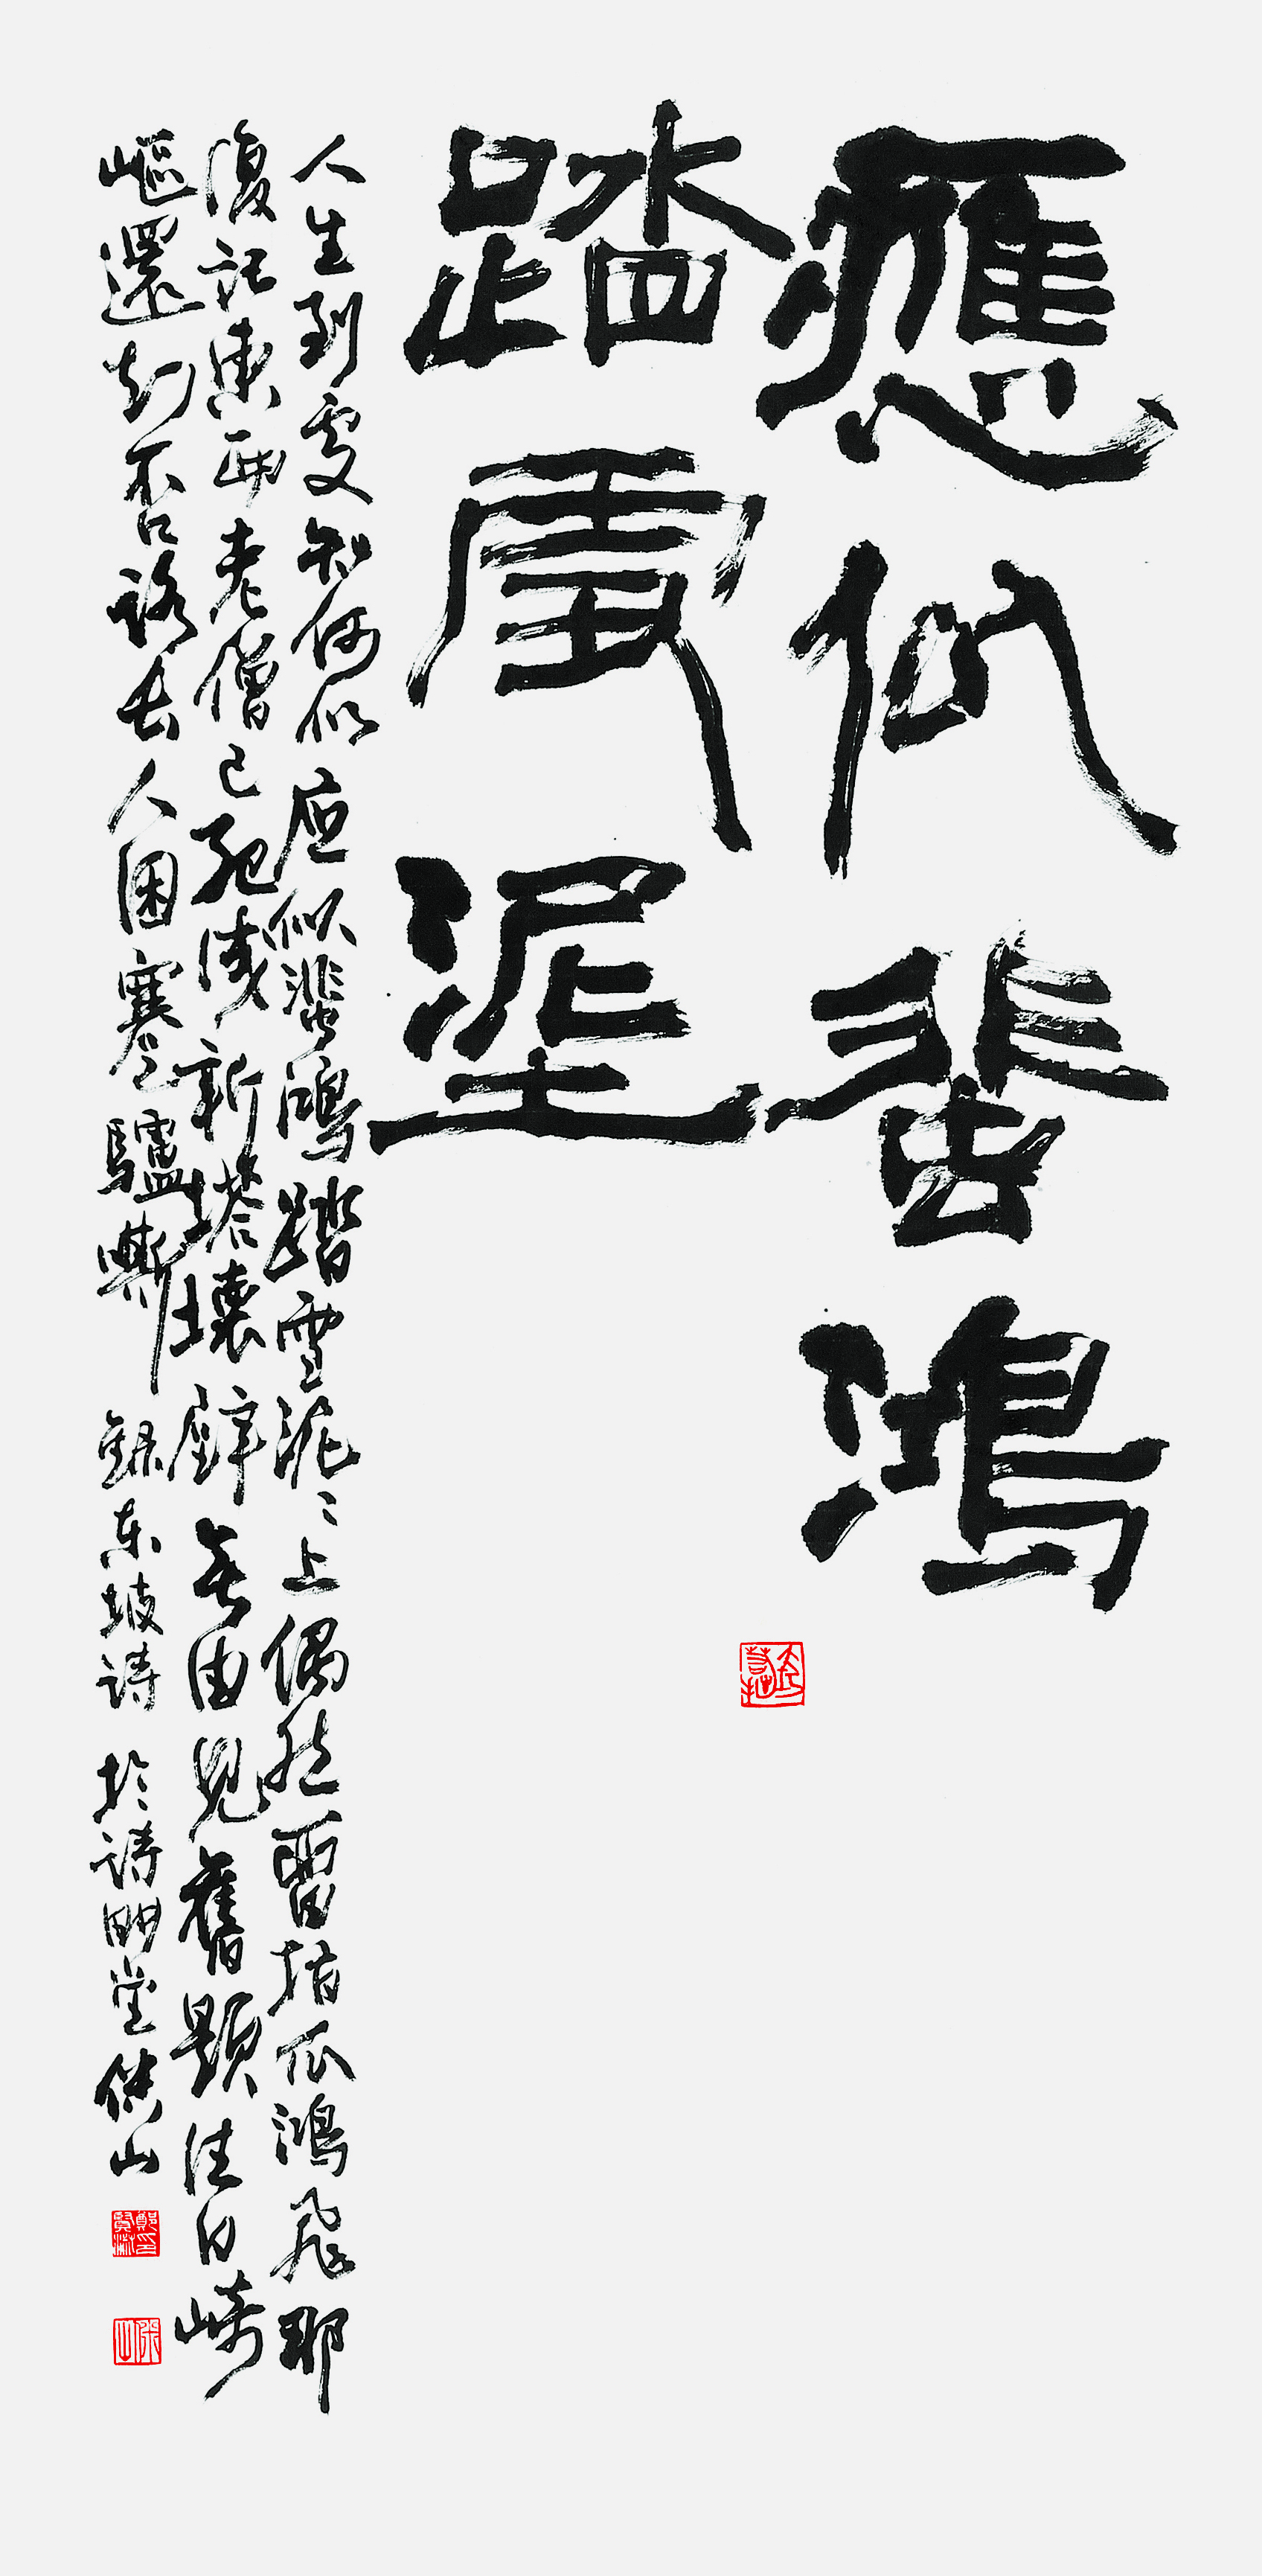 應似蜚鴻
踏雪泥
人生到處知何似應似蜚鴻踏雪泥〻上偶然留指爪鴻飛那
復計東西老僧已死成新塔壞壁無由見舊題往日崎
嶇還知否路長人困蹇驢嘶 録東坡詩 於詩明堂 山